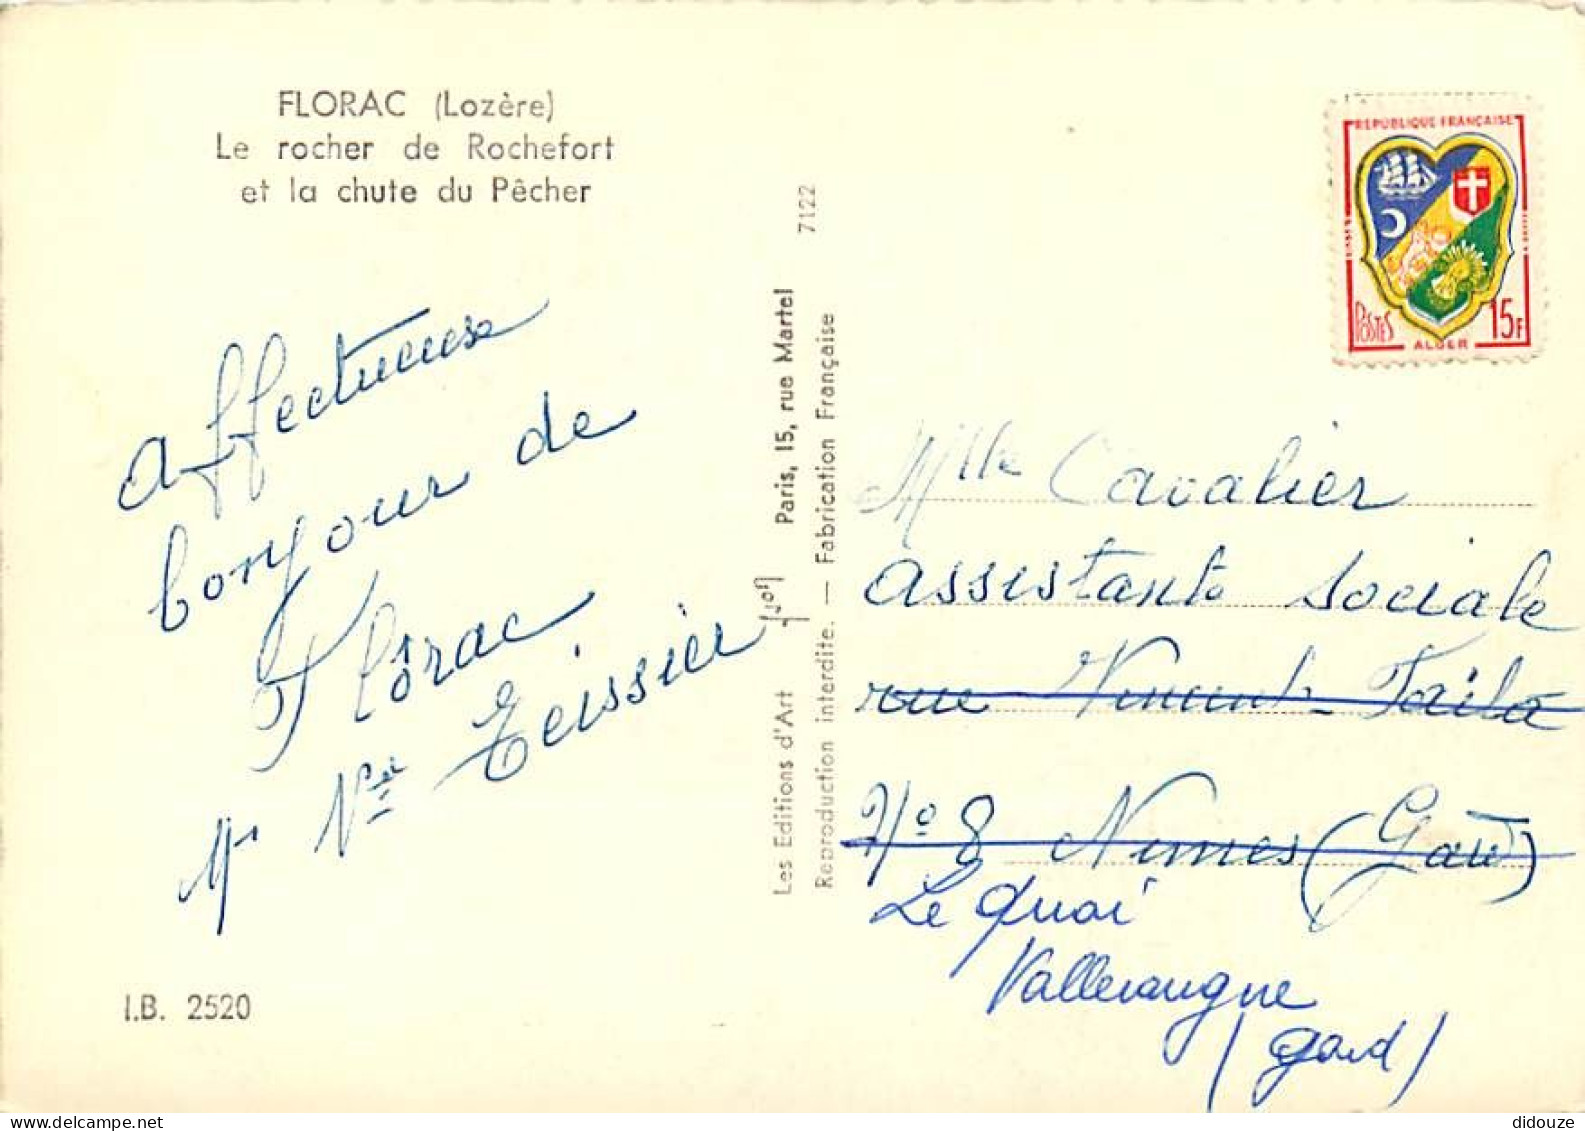 FLORAC (Lozère)
Le rocher de Rochefort
et la chute du Pêcher
Affectueux
bonjour de
Florac
Mr Vve Teissier
I.B. 2520
Les Editions d'Art "JOF" Paris, 15, rue Martel
Reproduction interdite. — Fabrication Française
7122
REPUBLIQUE FRANÇAISE
POSTES
15F
ALGER
Mlle Cavalier
assistante sociale
rue Vincent Faïta
N° 8 Nimes (Gard)
Le Quai
Valleraugue
(Gard)
didouze